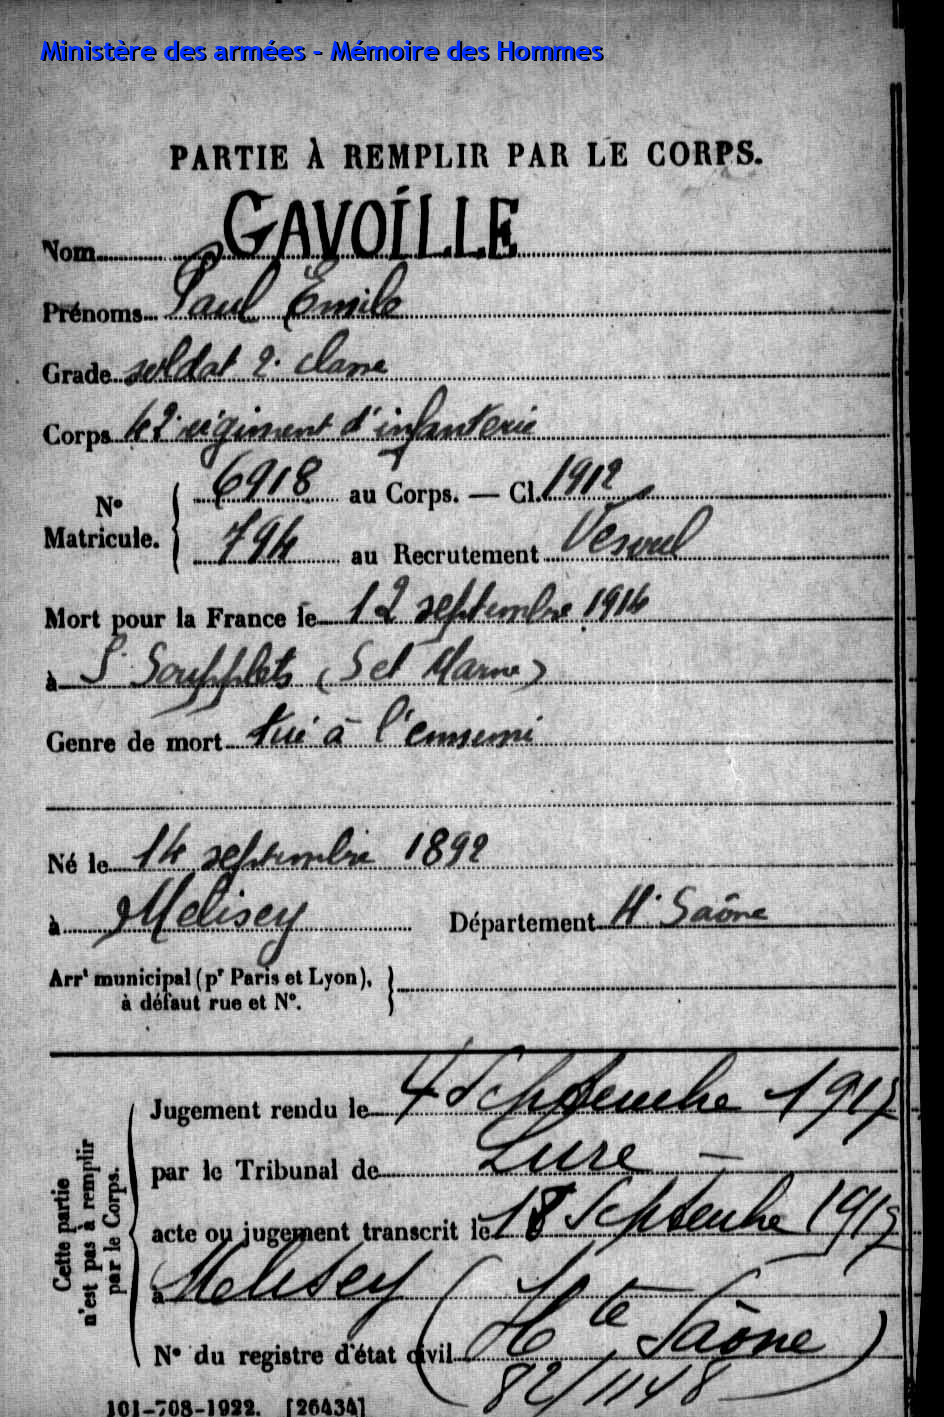 Ministère des armées - Mémoire des Hommes
PARTIE À REMPLIR PAR LE CORPS.
Nom GAVOILLE
Prénoms Paul Emile
Grade soldat 2e classe
Corps 42e régiment d'infanterie
N° Matricule. 6918 au Corps. — Cl. 1912
794 au Recrutement Vesoul
Mort pour la France le 12 septembre 1914
à St Soupplets (S et Marne)
Genre de mort tué à l'ennemi
Né le 14 septembre 1892
à Melisey Département Hte Saône
Arrt municipal (pr Paris et Lyon),
à défaut rue et N°.
Cette partie n'est pas à remplir par le Corps.
Jugement rendu le 4 Septembre 1917
par le Tribunal de Lure
acte ou jugement transcrit le 18 Septembre 1917
à Melisey (Hte Saône)
N° du registre d'état civil
82/1148
101-708-1922. [26434]